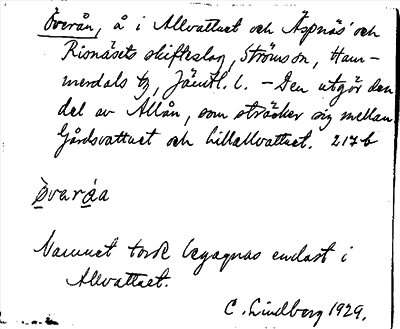 Överån, å i Allvattnet och Äspnäs och
Risnäsets skifteslag, Strömsun, Ham-
merdals tg, Jämtl. l. – Den utgör den
del av Allån, som sträcker sig mellan
Gårdsvattnet och Lillallvattnet. 217 b
Överån
Namnet torde begagnas endast i
Allvattnet.
C. Lindberg 1929.